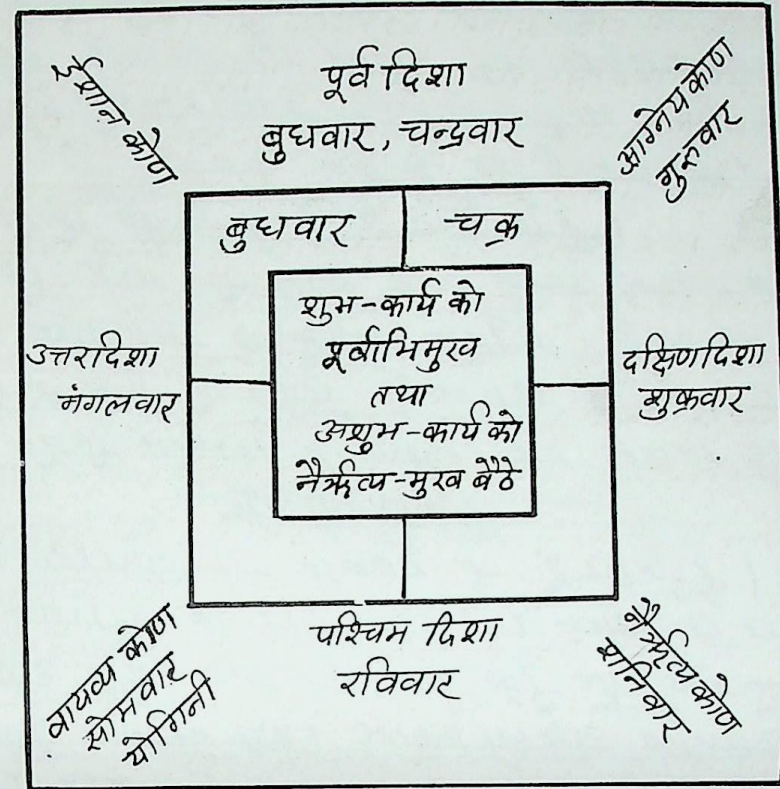 ईशान कोण
पूर्व दिशा
बुधवार, चन्द्रवार
आग्नेय कोण
गुरुवार
बुधवार
चक्र
शुभ-कार्य को
पूर्वाभिमुख
तथा
अशुभ-कार्य को
नैर्ऋत्य-मुख बैठे
उत्तरादिशा
मंगलवार
दक्षिणदिशा
शुक्रवार
वायव्य कोण
सोमवार
योगिनी
पश्चिम दिशा
रविवार
नैर्ऋत्य कोण
शनिवार